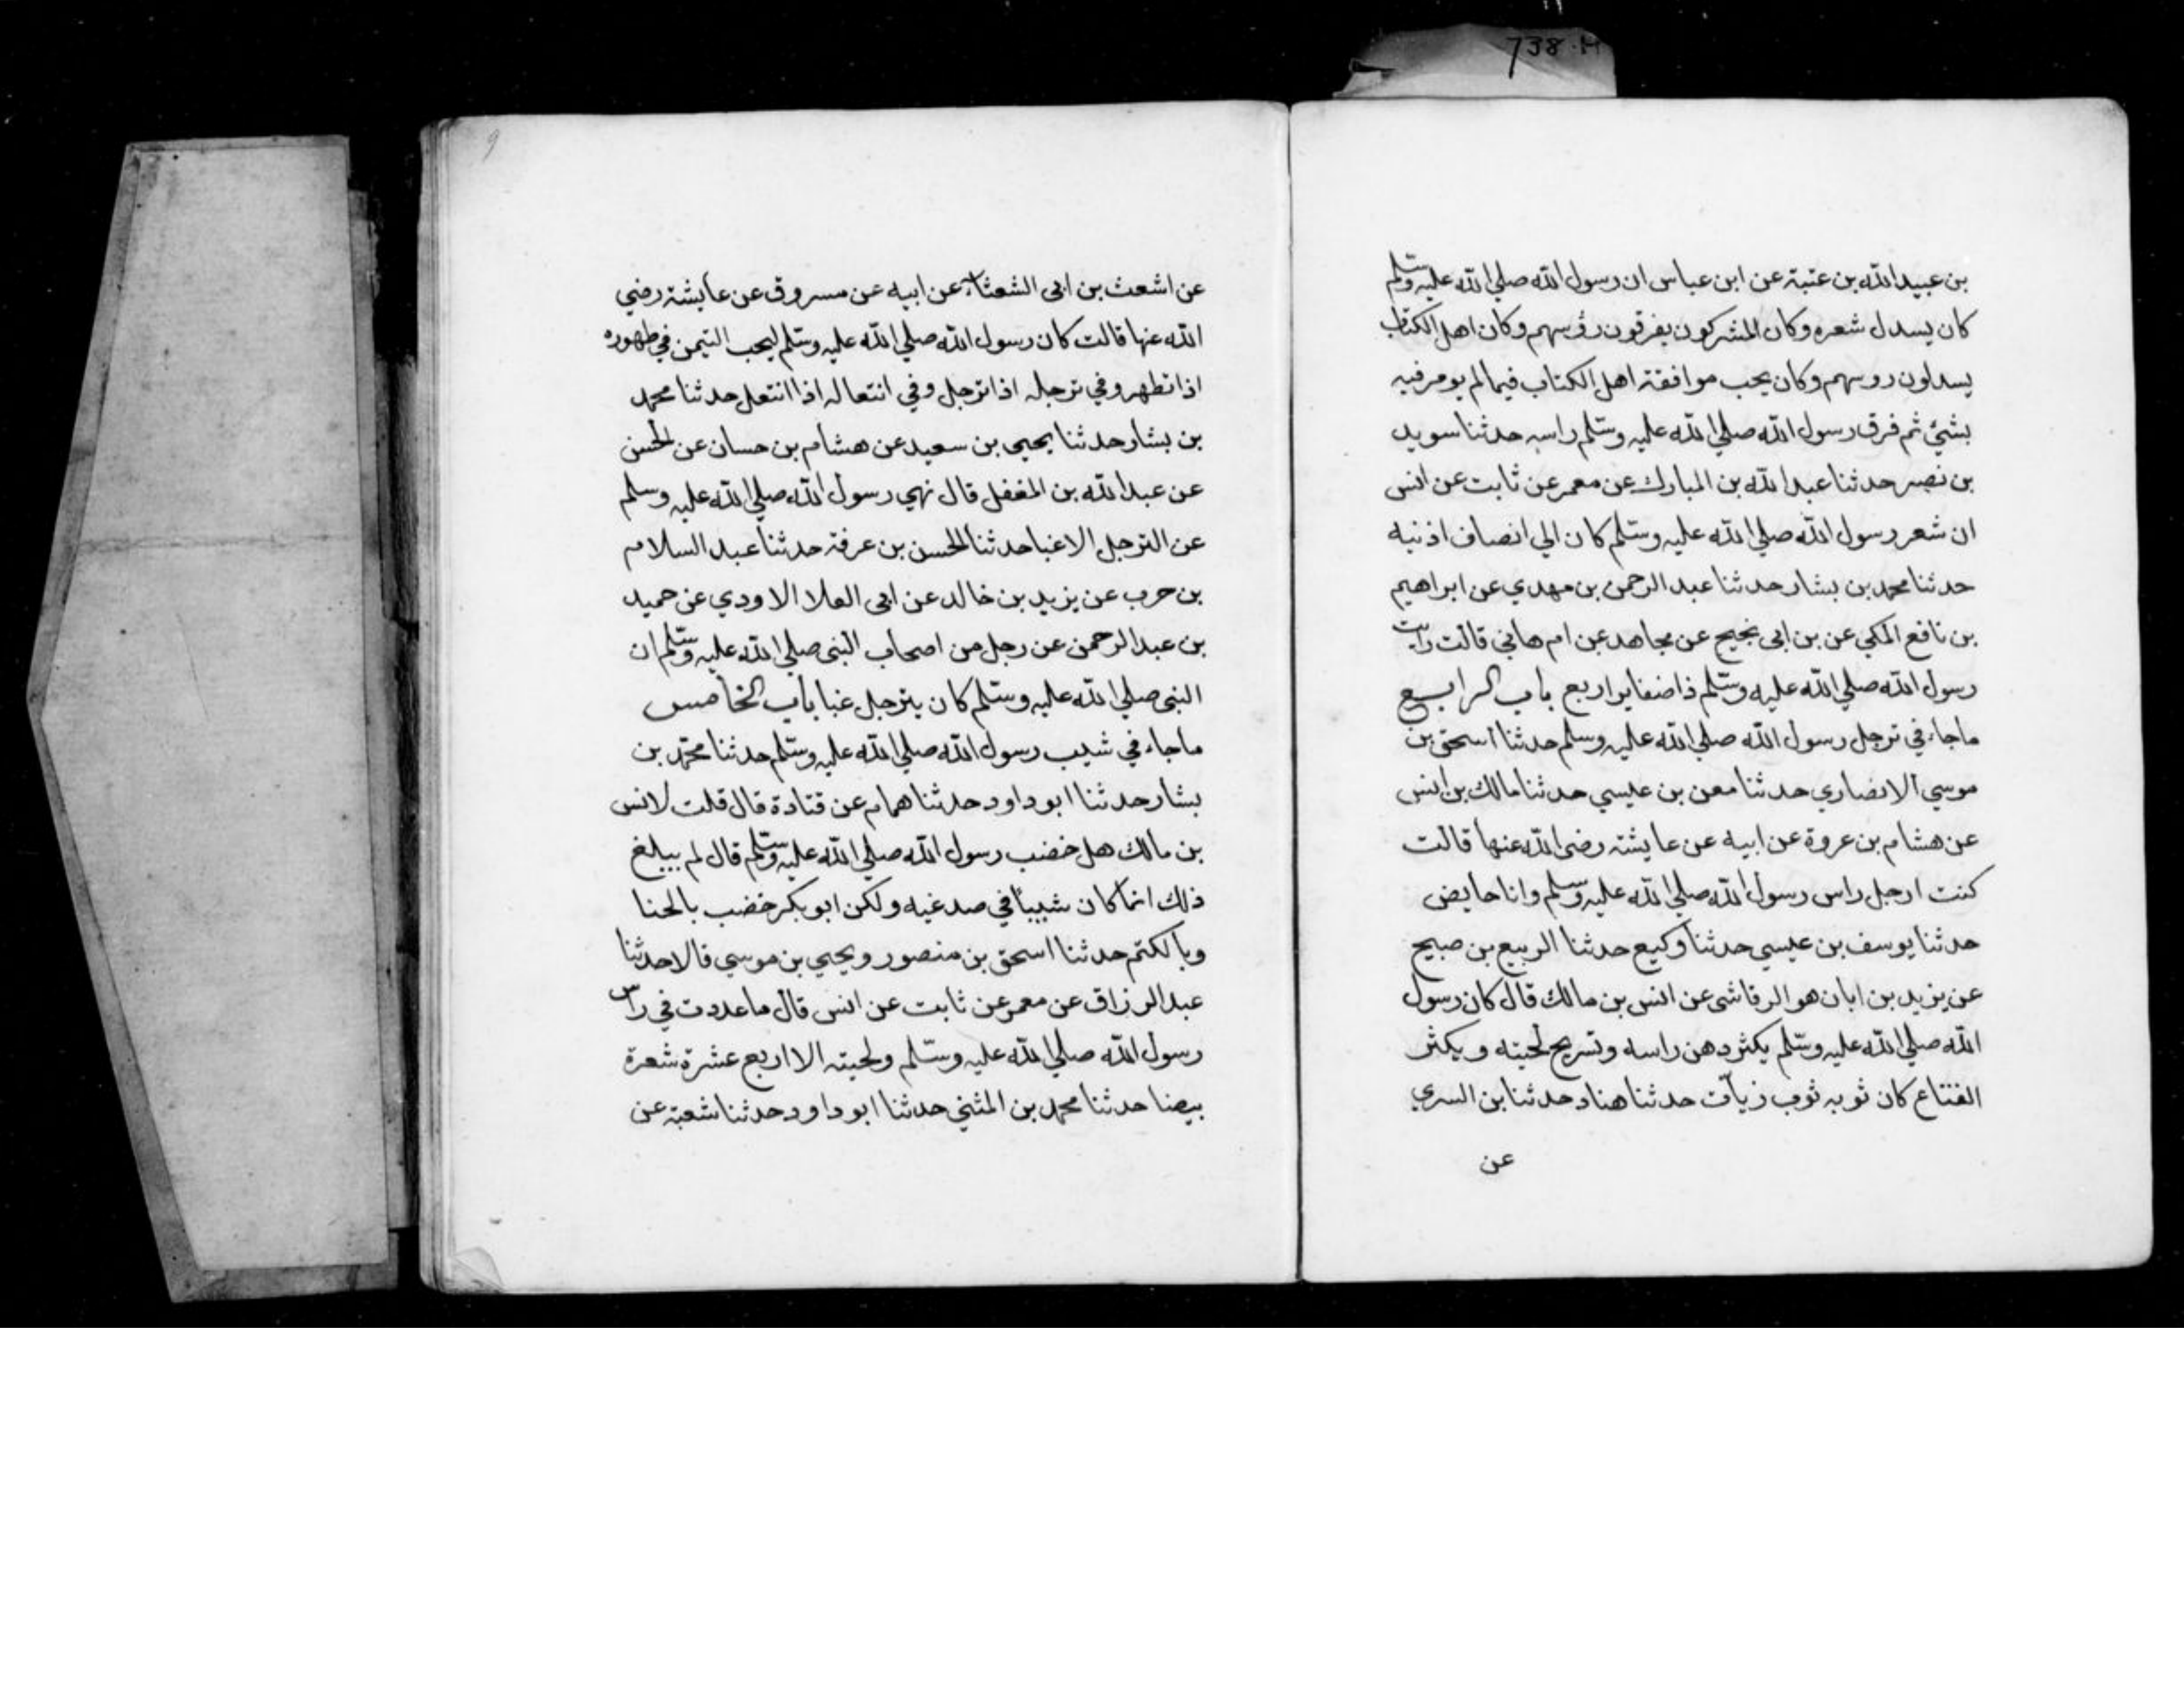 738.H
بن عبيد الله بن عتبة عن ابن عباس ان رسول الله صلي الله عليه وسلم
كان يسدل شعره وكان المشركون يفرقون رؤسهم وكان اهل الكتاب
يسدلون روسهم وكان يحب موافقة اهل الكتاب فيما لم يومر فيه
بشئ ثم فرق رسول الله صلي الله عليه وسلم راسه حدثنا سويد
بن نصر حدثنا عبد الله بن المبارك عن معمر عن ثابت عن انس
ان شعر رسول الله صلي الله عليه وسلم كان الي انصاف اذنيه
حدثنا محمد بن بشار حدثنا عبد الرحمن بن مهدي عن ابراهيم
بن نافع المكي عن بن ابي نجيح عن مجاهد عن ام هاني قالت رايت
رسول الله صلي الله عليه وسلم ذا ضفاير اربع باب الرابع
ماجاء في ترجل رسول الله صلي الله عليه وسلم حدثنا اسحق بن
موسي الانصاري حدثنا معن بن عيسي حدثنا مالك بن انس
عن هشام بن عروة عن ابيه عن عايشة رضي الله عنها قالت
كنت ارجل راس رسول الله صلي الله عليه وسلم وانا حايض
حدثنا يوسف بن عيسي حدثنا وكيع حدثنا الربيع بن صبيح
عن يزيد بن ابان هو الرقاشى عن انس بن مالك قال كان رسول
الله صلي الله عليه وسلم يكثر دهن راسه وتسريح لحيته ويكثر
القناع كان ثوبه ثوب زيات حدثنا هناد حدثنا بن السري
عن
9
عن اشعث بن ابي الشعثاء عن ابيه عن مسروق عن عايشة رضي
الله عنها قالت كان رسول الله صلي الله عليه وسلم ليحب التيمن في طهوره
اذا تطهر وفي ترجله اذا ترجل وفي انتعاله اذا انتعل حدثنا محمد
بن بشار حدثنا يحيي بن سعيد عن هشام بن حسان عن الحسن
عن عبد الله بن المغفل قال نهي رسول الله صلي الله عليه وسلم
عن الترجل الا غبا حدثنا الحسن بن عرفة حدثنا عبد السلام
بن حرب عن يزيد بن خالد عن ابي العلا الاودي عن حميد
بن عبد الرحمن عن رجل من اصحاب النبى صلي الله عليه وسلم ان
النبى صلي الله عليه وسلم كان يترجل غبا باب الخامس
ماجاء في شيب رسول الله صلي الله عليه وسلم حدثنا محمد بن
بشار حدثنا ابو داود حدثنا همام عن قتادة قال قلت لانس
بن مالك هل خضب رسول الله صلي الله عليه وسلم قال لم يبلغ
ذلك انما كان شيبا في صدغيه ولكن ابو بكر خضب بالحنا
وبالكتم حدثنا اسحق بن منصور ويحيي بن موسي قالا حدثنا
عبد الرزاق عن معمر عن ثابت عن انس قال ما عددت في راس
رسول الله صلي الله عليه وسلم ولحيته الا اربع عشرة شعرة
بيضا حدثنا محمد بن المثني حدثنا ابو داود حدثنا شعبة عن